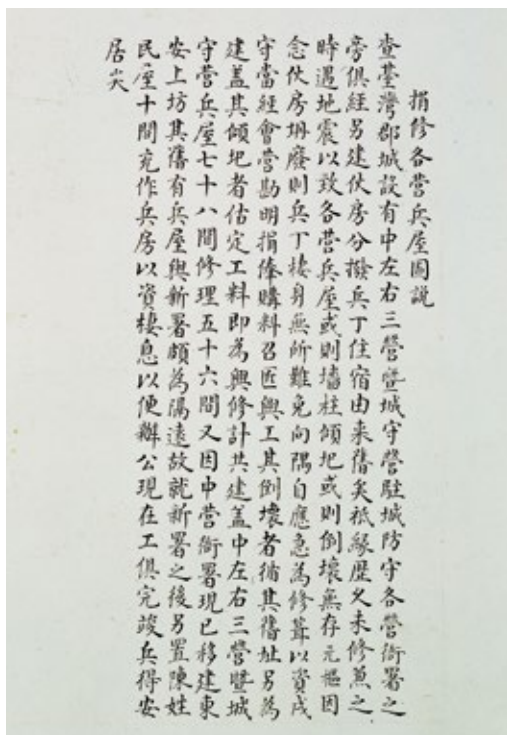 捐修各營兵屋圖說
查臺灣郡城設有中左右三營曁城守營駐城防守各營衙署之
旁俱經另建伙房分撥兵丁住宿由来舊矣祇緣歴久未修蒸之
時遇地震以致各營兵屋或則墻柱傾圮或則倒壞無存元樞因
念伙房坍廢則兵丁棲身無所難免向隅自應急為修葺以資戍
守當經會營勘明捐俸購料召匠興工其倒壞者循其舊址另為
建盖其傾圮者估定工料即為興修計共建盖中左右三營曁城
守營兵屋七十八間修理五十六間又因中營衙署現已移建東
安上坊其舊有兵屋與新署頗為隔遠故就新署之後另置陳姓
民屋十間充作兵房以資棲息以便辦公現在工俱完竣兵得安
居矣